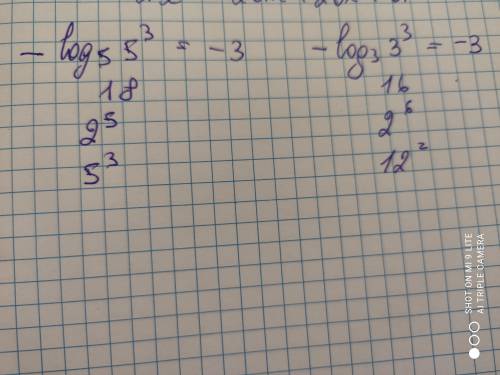 - log₅ 5³ = -3 - log₃ 3³ = -3
18 16
2⁵ 2⁶
5³ 12²
SHOT ON MI 9 LITE
AI TRIPLE CAMERA